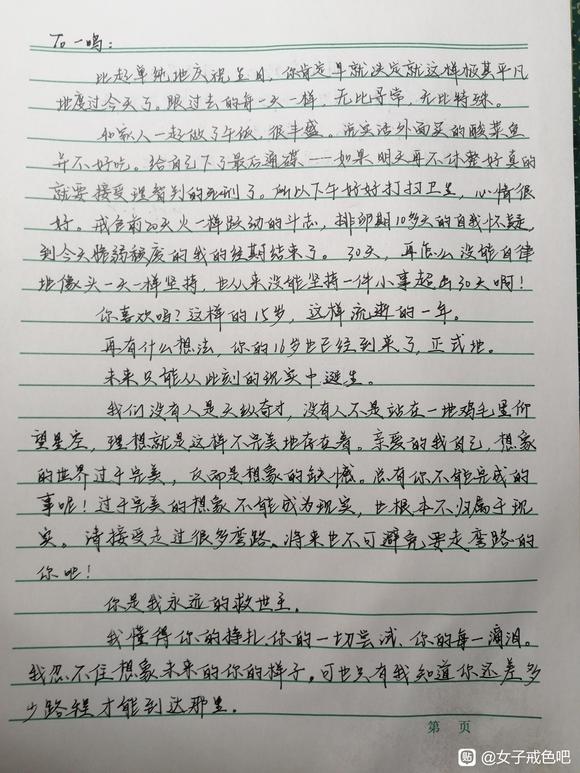 To 一鸣：
比起单纯地庆祝生日，你肯定早就决定就这样极其平凡
地度过今天了。跟过去的每一天一样，无比寻常，无比特殊。
和家人一起做了午饭，很丰盛。说实话外面买的酸菜鱼
并不好吃。给自己下了最后通牒——如果明天再不休整好真的
就要接受理智判的死刑了。所以下午好好打扫卫生，心情很
好。戒色前20天火一样跃动的斗志，排卵期10多天的自我怀疑，
到今天脆弱极度的我的经期结束了。30天，再怎么没能自律
地像头一天一样坚持，也从来没能坚持一件小事超出30天啊！
你喜欢吗？这样的15岁，这样流逝的一年。
再有什么想法，你的16岁也已经到来了，正式地。
未来只能从此刻的现实中诞生。
我们没有人是天纵奇才，没有人不是站在一地鸡毛里仰
望星空，理想就是这样不完美地存在着。亲爱的我自己，想象
的世界过于完美，反而是想象的缺憾。总有你不能完成的
事呢！过于完美的想象不能成为现实，也根本不归属于现
实。请接受走过很多弯路、将来也不可避免要走弯路的
你吧！
你是我永远的救世主。
我懂得你的挣扎、你的一切尝试、你的每一滴泪。
我忍不住想象未来的你的样子。可也只有我知道你还差多
少路程才能到达那里。
第 页
贴 @女子戒色吧